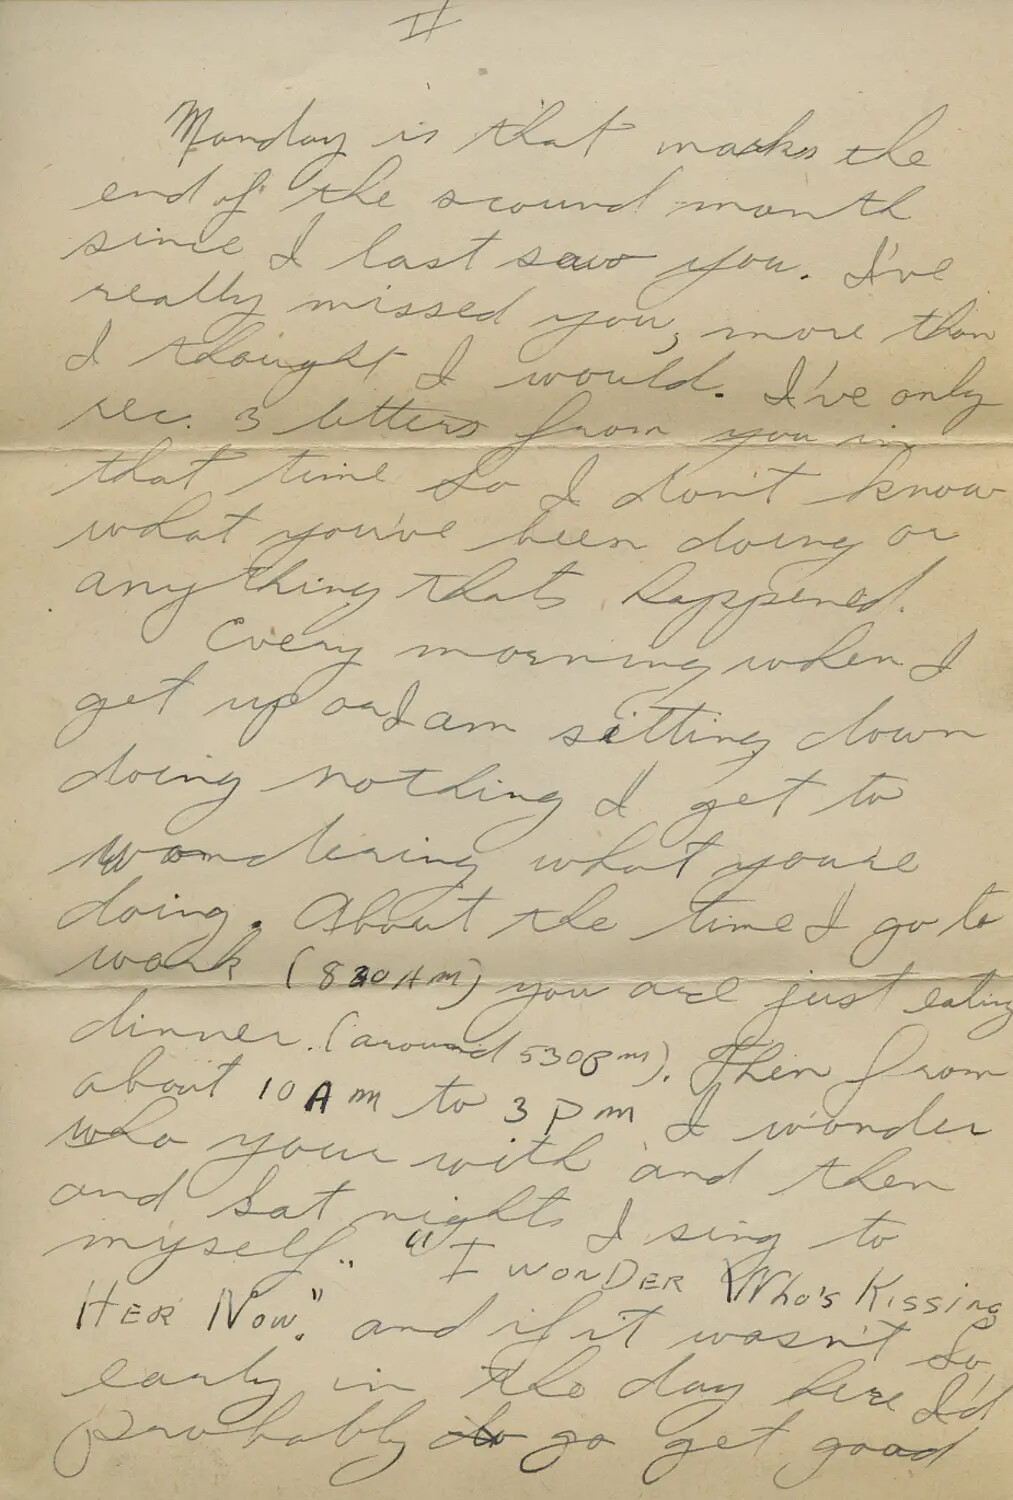 II
Monday is that marks the
end of the second month
since I last saw you. I've
really missed you, more than
I thought I would. I've only
rec. 3 letters from you in
that time so I don't know
what you've been doing or
anything thats happened.
Every morning when I
get up or I am sitting down
doing nothing I get to
wondering what you're
doing. About the time I go to
work (830 AM) you are just eating
dinner. (around 530 pm). Then from
about 10 AM to 3 pm I wonder
who your with and then
and Sat nights I sing to
myself.. "I WONDER Who's Kissing
HER Now." and if it wasn't so
early in the day here I'd
probably go get good